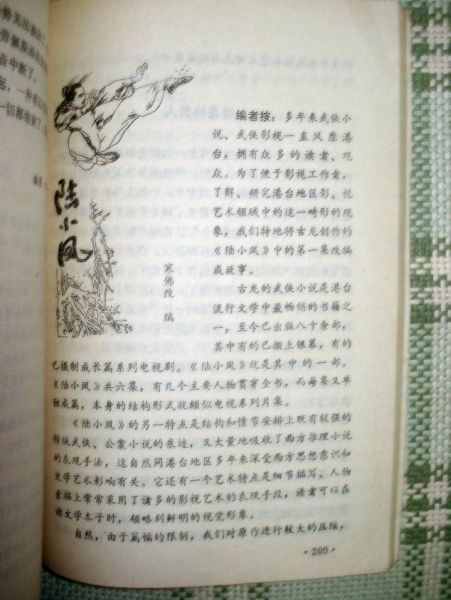 陆小凤
宋佛改编
编者按：多年来武侠小
说、武侠影视一直风靡港
台，拥有众多的读者、观
众。为了便于影视工作者，
了解、研究港台地区影、视
艺术领域中的这一畸形的现
象，我们特地将古龙创作的
《陆小凤》中的第一集改编
成故事。
古龙的武侠小说是港台
流行文学中最畅销的书籍之
一，至今已出版八十余部，
其中有的已搬上银幕，有的
已摄制成长篇系列电视剧。《陆小凤》就是其中的一部。
《陆小凤》共六集，有几个主要人物贯穿全书，而每集又单
独成篇，本身的结构形式就颇似电视系列片集。
《陆小凤》的另一特点是结构和情节安排上既有较强的
传统武侠、公案小说的痕迹，又大量地吸收了西方推理小说
的表现手法，这自然同港台地区多年来深受西方思想意识和
文学艺术影响有关。它还有一个艺术特点是细节描写、人物
素描上常常采用了诸多的影视艺术的表现手段，读者可以在
读文学本子时，领略到鲜明的视觉形象。
自然，由于篇幅的限制，我们对原作进行较大的压缩，
·209·